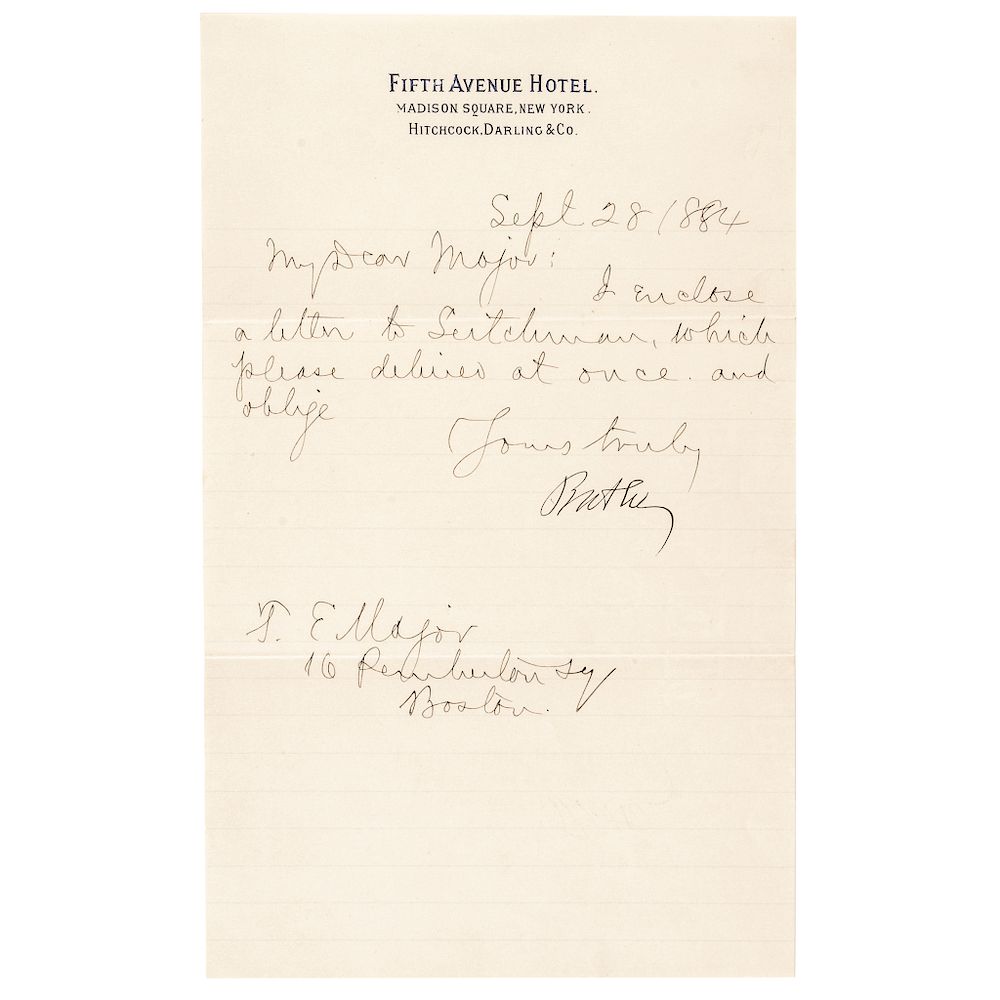 FIFTH AVENUE HOTEL.
MADISON SQUARE, NEW YORK.
HITCHCOCK, DARLING & CO.
Sept 28 1884
My Dear Major:
I enclose
a letter to , which
please deliver at once. and
oblige
Yours truly
Butler
T. E Major
16 Pemberton Sq
Boston.